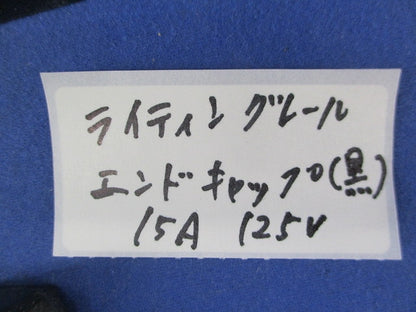 ライティングレール
エンドキャップ(黒)
15A 125V